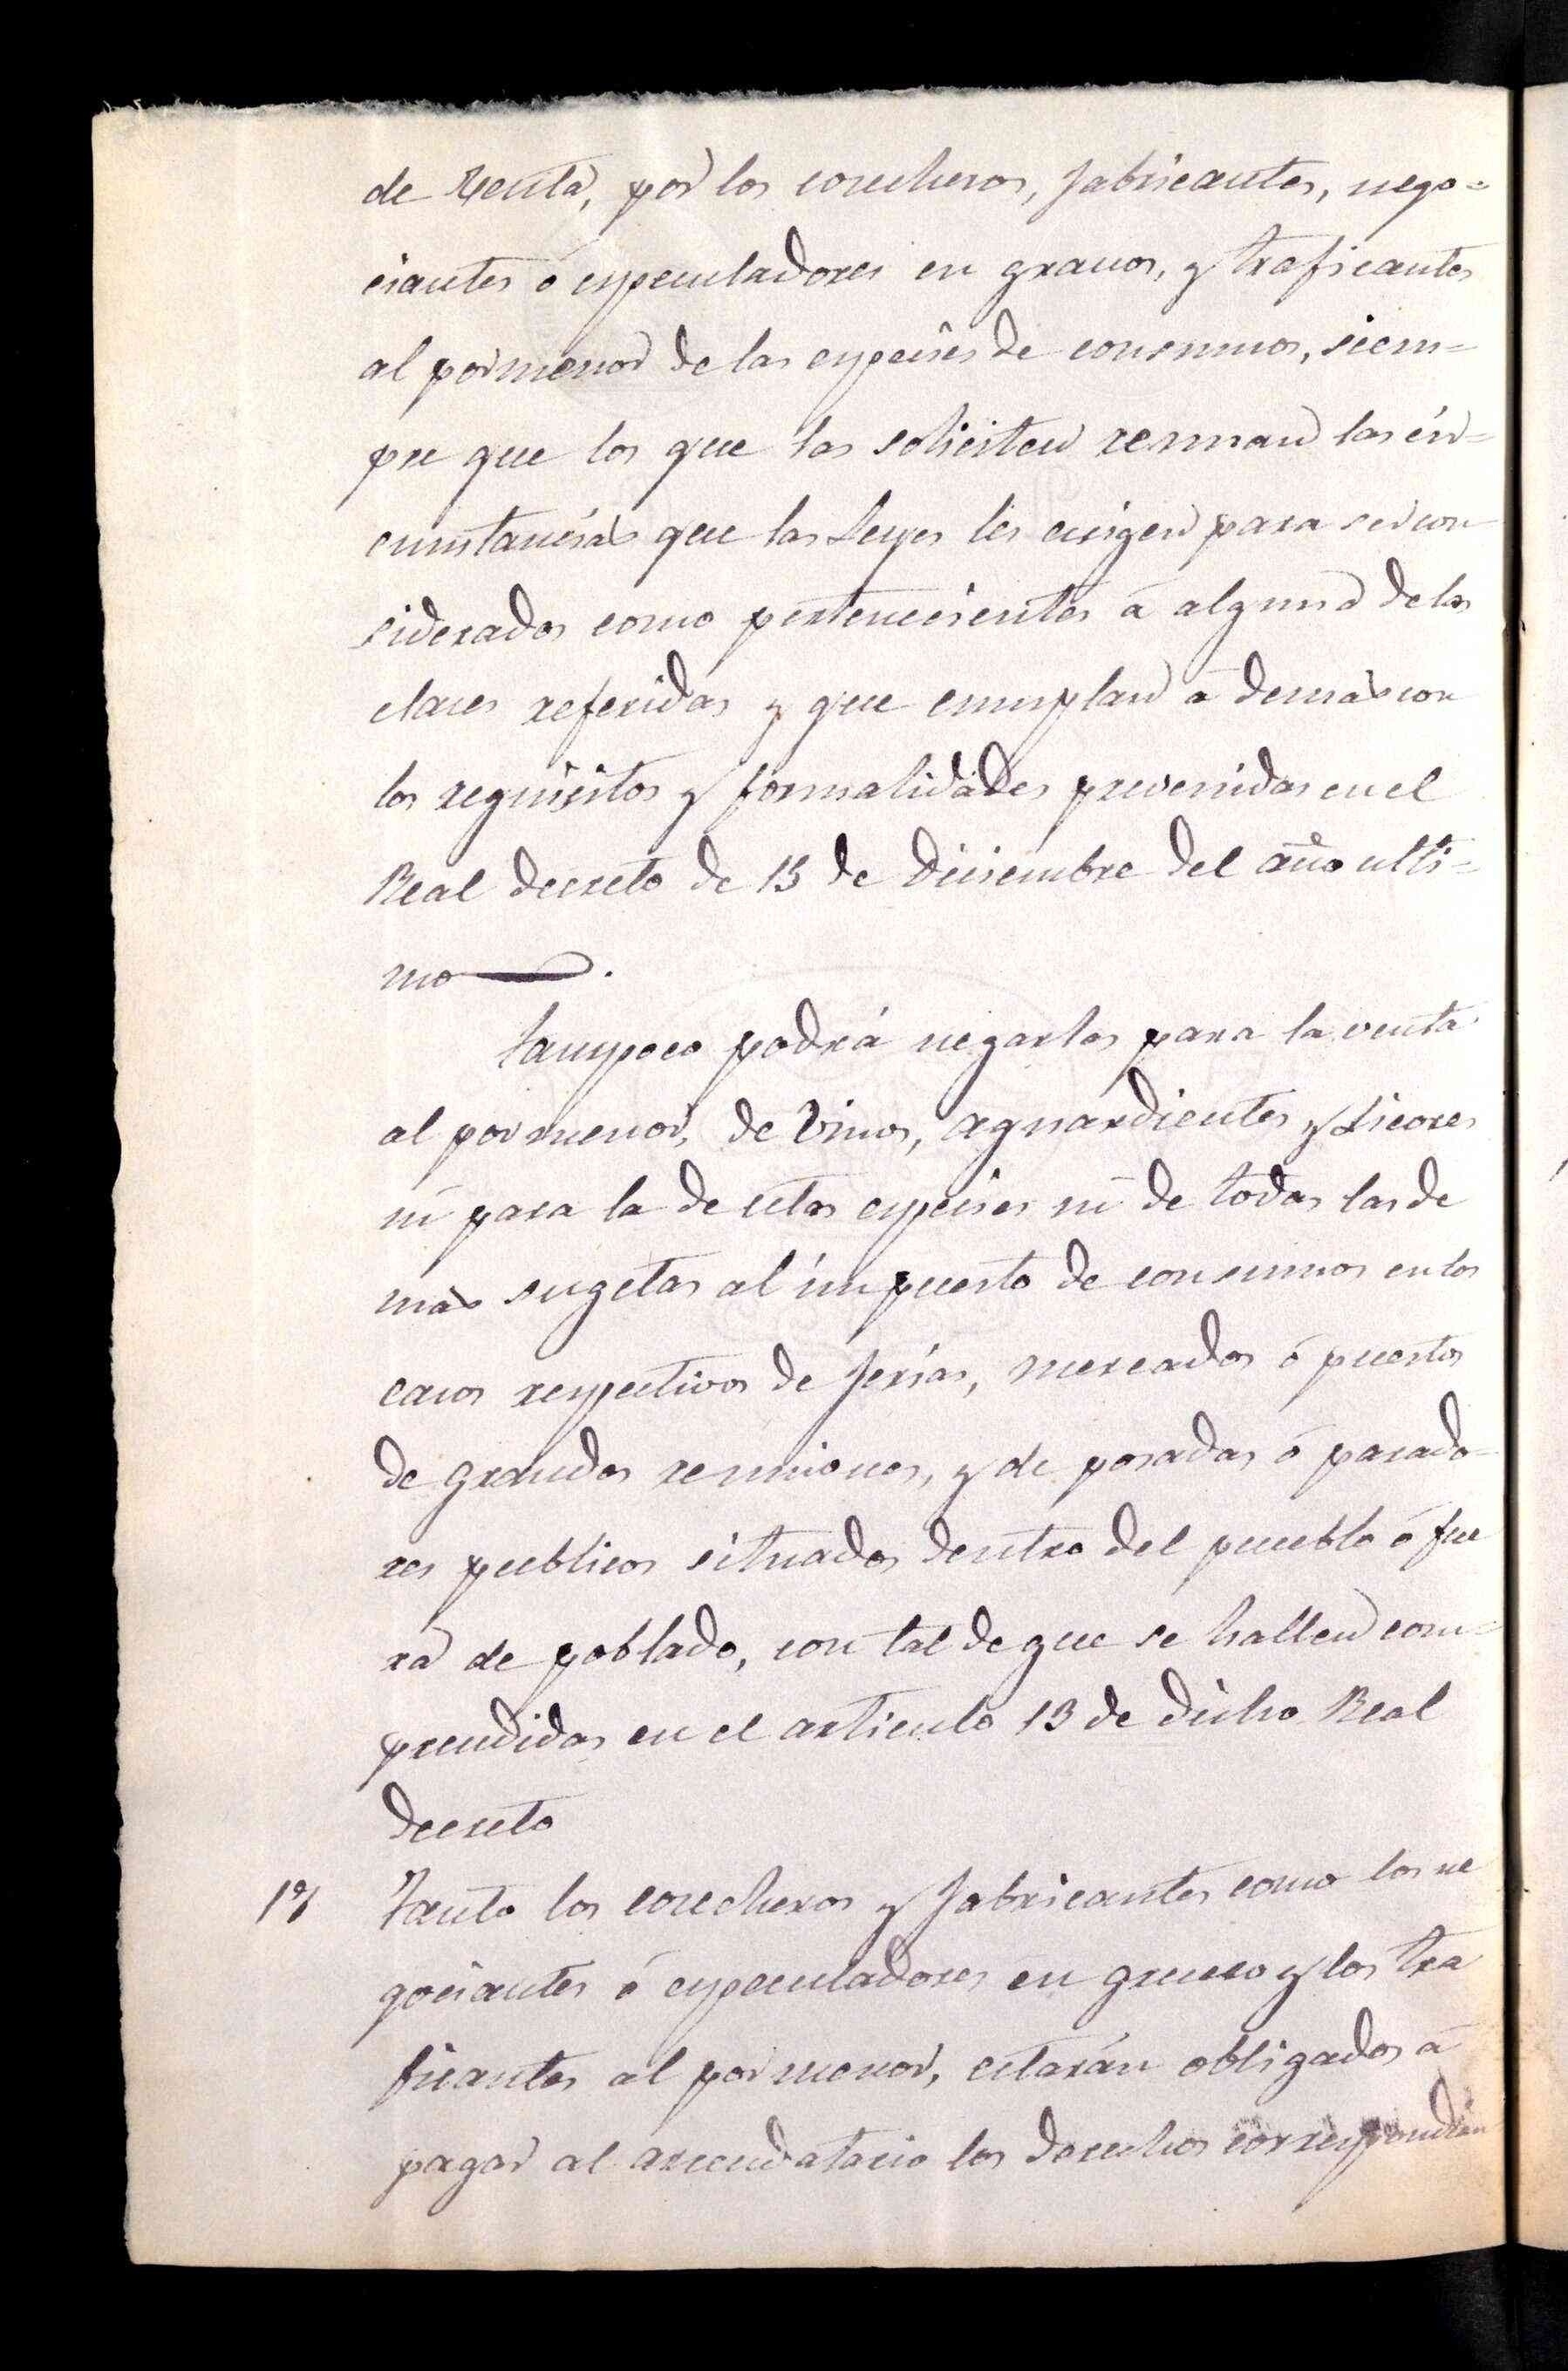 de Venta, por los cosecheros, fabricantes, nego=
ciantes ó especuladores en granos, y traficantes
al pormenor de las especies de consumos, siem=
pre que los que las soliciten reunan las cir=
cunstancias que las Leyes les exigen para ser con
siderados como pertenecientes á alguna de las
clases referidas y que cumplan á demás con
los requisitos y formalidades prevenidas en el
Real decreto de 15 de Diciembre del año ulti=
mo.
Tampoco podrá negarlas para la venta
al por menor, de Vinos, aguardientes y Licores
ni para la de estas especies ni de todas las de
más sugetas al impuesto de consumos en los
casos respectivos de ferias, mercados ó puestos
de grandes reuniones, y de posadas ó parado=
res publicos situados dentro del pueblo ó fue
ra de poblado, con tal de que se hallen com=
prendidas en el articulo 13 de dicho Real
decreto
17 Tanto los cosecheros y fabricantes como los ne
gociantes ó especuladores en grueso y los tra
ficantes al por menor, estarán obligados á
pagar al arrendatario los derechos correspondien